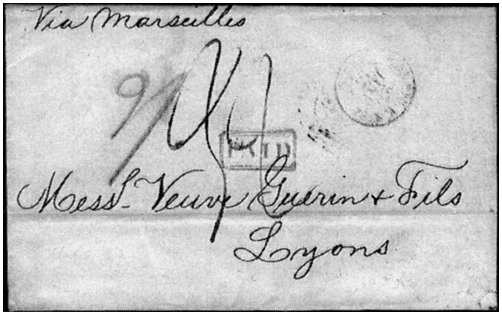 Via Marseilles
PAID
Mess.rs Veuve Guerin & Fils
Lyons